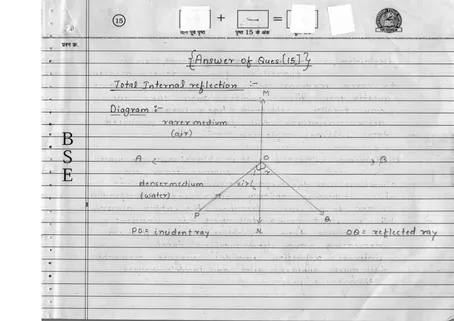 15
+ =
पृष्ठ 15 के अंक
प्रश्न क्र.
{Answer of Ques.[15]}
Total Internal reflection :-
M
Diagram :-
rarer medium
(air)
A O B
i r
denser medium
(water)
P N Q
PO = incident ray OQ = reflected ray
B
S
E